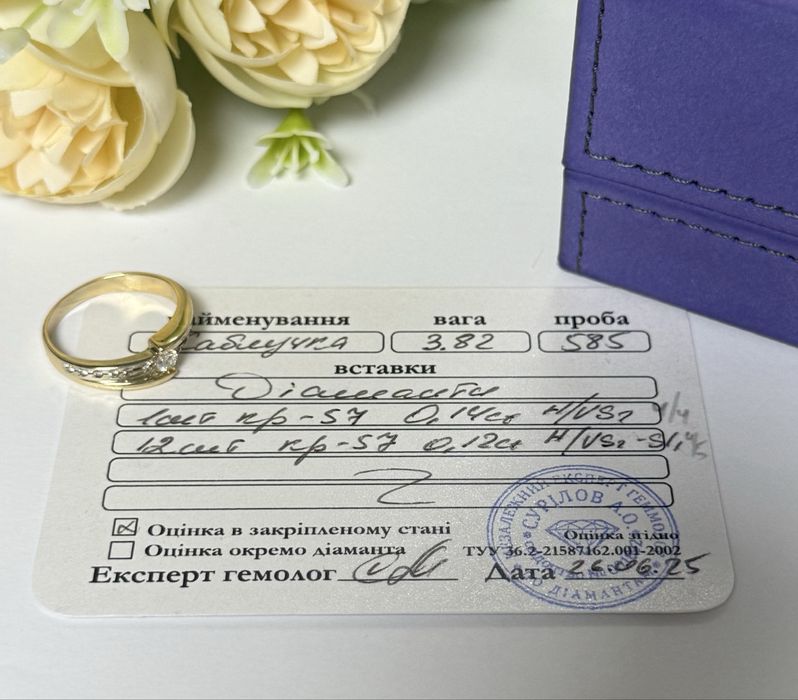 найменування вага проба
Каблучка 3.82 585
вставки
Діаманти
1шт кр-57 0,14ct H/VS2 4/4
12шт кр-57 0,12ct H/VS2-SI1
Оцінка в закріпленому стані
Оцінка окремо діаманта
Оцінка згідно
ТУУ 36.2-21587162.001-2002
Експерт гемолог Дата 26.06.25
НЕЗАЛЕЖНИЙ ЕКСПЕРТ ГЕМОЛОГ
СУРІЛОВ А.О.
ДІАМАНТИ